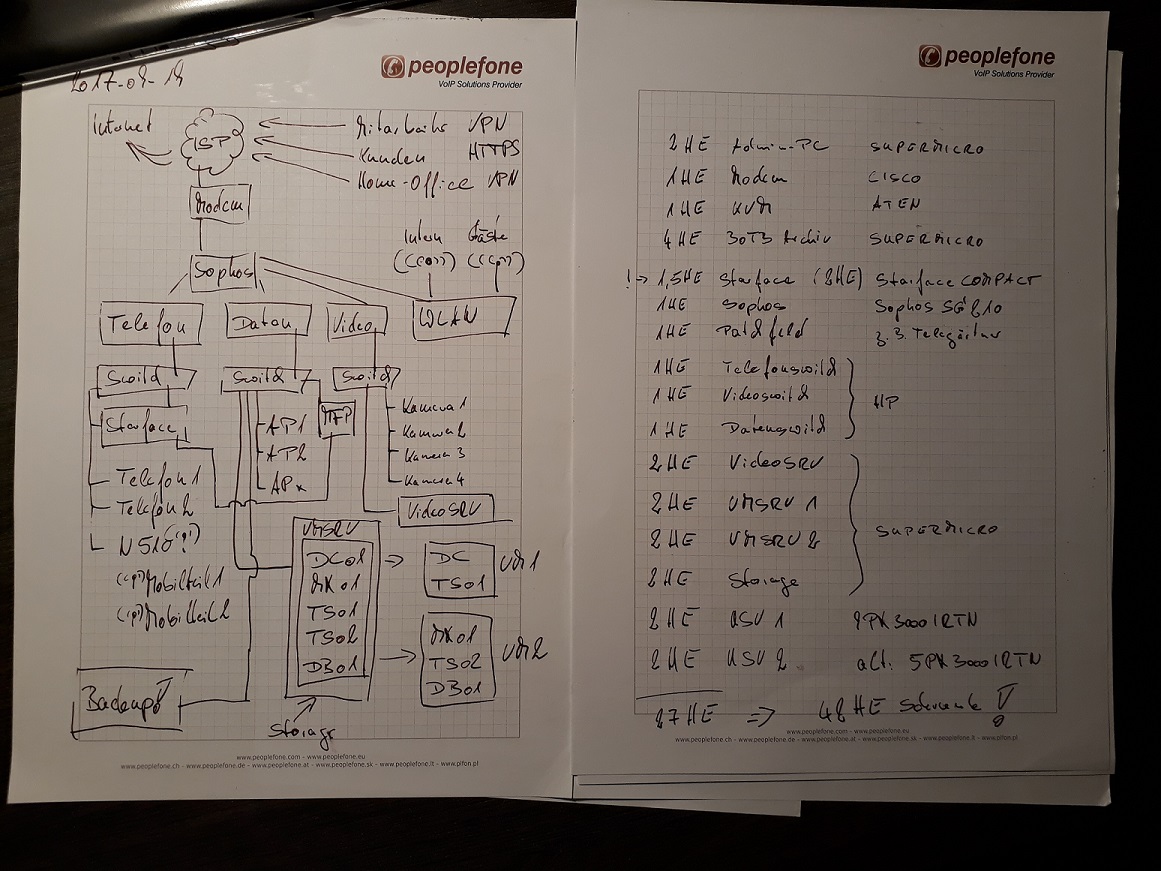 2017-09-19
peoplefone
VoIP Solutions Provider
Internet
ISP
Mitarbeiter VPN
Kunden HTTPS
Home-Office VPN
Modem
Intern Gäste
Sophos
Telefon
Daten
Video
WLAN
Switch
Switch
Switch
Starface
MFP
AP1
AP2
APx
Kamera 1
Kamera 2
Kamera 3
Kamera 4
Telefon 1
Telefon 2
N510
Mobilteil 1
Mobilteil 2
VideoSRV
VMSRV
DC01
MX01
TS01
TS02
DB01
DC
TS01
VM1
MX01
TS02
DB01
VM2
Backup
Storage
www.peoplefone.com - www.peoplefone.eu
www.peoplefone.ch - www.peoplefone.de - www.peoplefone.at - www.peoplefone.sk - www.peoplefone.it - www.pifon.pl
peoplefone
VoIP Solutions Provider
2HE Admin-PC SUPERMICRO
1HE Modem CISCO
1HE KVM ATEN
4HE 30TB Archiv SUPERMICRO
!→ 1,5HE Starface (2HE) Starface COMPACT
1HE Sophos Sophos SG210
1HE Patchfeld z.B. Telegärtner
1HE Telefonswitch
1HE Videoswitch HP
1HE Datenswitch
2HE VideoSRV
2HE VMSRV 1
2HE VMSRV 2 SUPERMICRO
2HE Storage
2HE USV 1 9PX3000IRTN
2HE USV 2 alt. 5PX3000IRTN
27HE => 42HE Schrank!
www.peoplefone.com - www.peoplefone.eu
www.peoplefone.ch - www.peoplefone.de - www.peoplefone.at - www.peoplefone.sk - www.peoplefone.it - www.pifon.pl